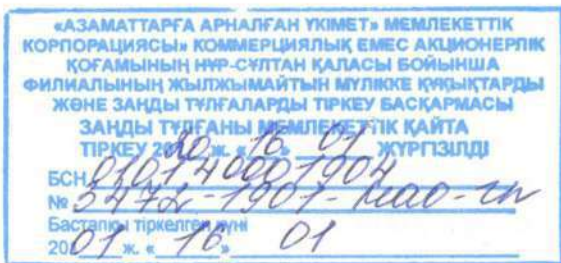 «АЗАМАТТАРҒА АРНАЛҒАН ҮКІМЕТ» МЕМЛЕКЕТТІК
КОРПОРАЦИЯСЫ» КОММЕРЦИЯЛЫҚ ЕМЕС АКЦИОНЕРЛІК
ҚОҒАМЫНЫҢ НҰР-СҰЛТАН ҚАЛАСЫ БОЙЫНША
ФИЛИАЛЫНЫҢ ЖЫЛЖЫМАЙТЫН МҮЛІККЕ ҚҰҚЫҚТАРДЫ
ЖӘНЕ ЗАҢДЫ ТҰЛҒАЛАРДЫ ТІРКЕУ БАСҚАРМАСЫ
ЗАҢДЫ ТҰЛҒАНЫ МЕМЛЕКЕТТІК ҚАЙТА
ТІРКЕУ 2020 ж. «16» 01 ЖҮРГІЗІЛДІ
БСН 010140001904
№ 3472-1901-НАО-
Бастапқы тіркелген күні
2001 ж. «16» 01